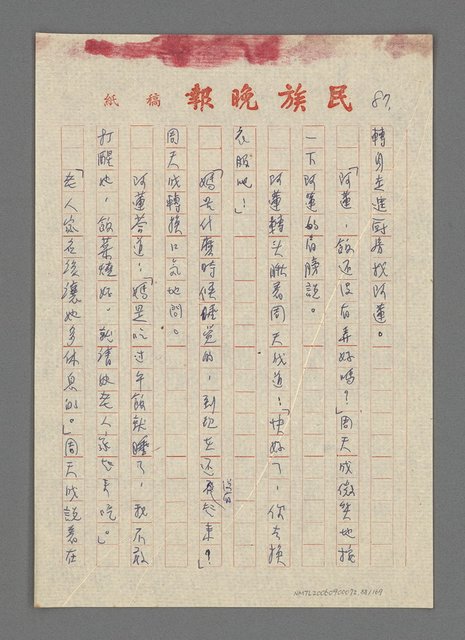 87.
民族晚報 稿紙
轉身走進廚房找阿蓮。
「阿蓮,飯還沒有弄好嗎?」周天成微笑地按
一下阿蓮的肩膀說。
阿蓮轉头瞅着周天成道:「快好了,你去換
衣服吧!」
「媽是什麼時候睡覚的,到现在还没有起来?」
周天成轉換口气地問。
阿蓮答道:「媽是吃过午飯就睡了,我不敢
打醒她,飯菜燒好,就請她老人家出來吃。」
「老人家應該讓她多休息的。」周天成說着在
NMTL20060900072 88/169